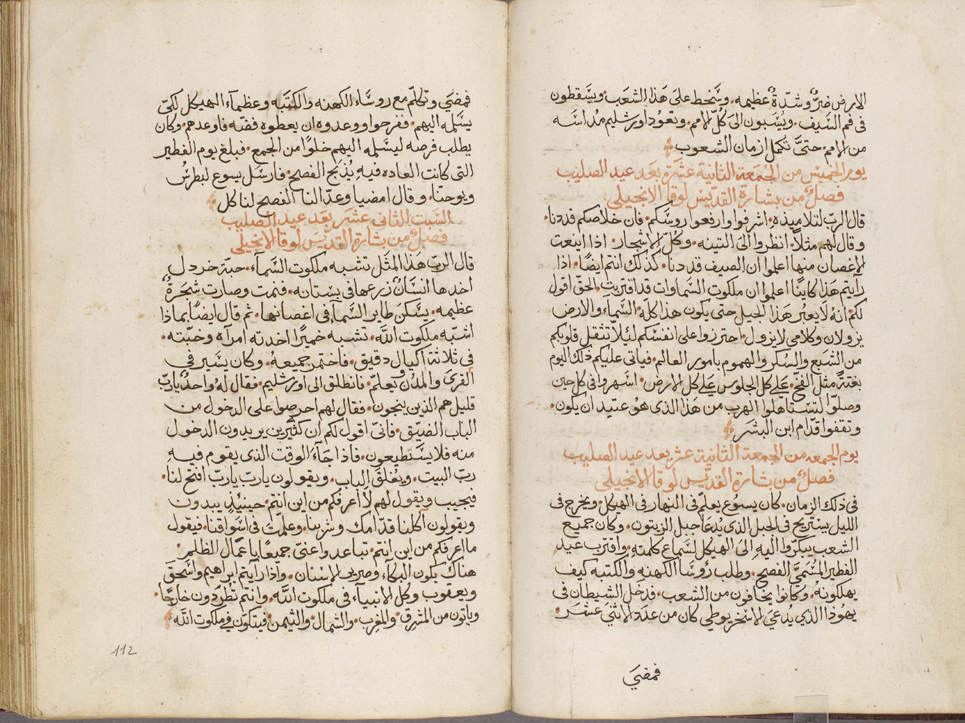 الارض ضرٌّ وشدّةٌ عظيمه۰ وسُخط على هَذا الشعَب۰ ويسَقطون
فى فم السَيف۰ ويُسَبون الىَ كُلّ الامم۰ وتعَود اورشليم مُداسَه
من الامم۰ حتىَّ تكمل ازمان الشعوب۰
يوم الخميس من الجُمعَة الثانية عشرة بعَد عيد الصليب
فصلٌ من بشارة القديس لوقا الانجيلى
قال الربّ لتلاميذه۰ اشرفوا وارفعوا روسَكم۰ فان خلاصكم قد دنا۰
وقال لهم مثلاً۰ انظروا الىَ التينه۰ وكلّ الاشجار۰ اذا اينعت
الاغصان منها اعلموا ان الصيف قد دنا۰ كذلك انتم ايضًا۰ اذا
رايتم هَذا كاينًا اعلموا ان ملكوت السَماوات قد اقتربت۰ الحق اقول
لكم انه لا يعبر هَذا الجيل حتى يكون هذا كلّه۰ السَماء والارض
يزولان وكلامى لا يزول۰ احترزوا على انفسَكم ليلا تثقل قلوبكم
من الشبَع والسُكر والهموم بامور العالم۰ فياتى عليكم ذلك اليوم
بغتةً مثل الفخ۰ عَلى كل الجلوس عَلى كل الارض۰ اسَهروا فى كل حين
وصلوا لتسَتاهلوا الهرب من هَذا الذى هو عتيد ان يكون۰
وتقفوا قدّام ابن البشر
يوم الجمعه من الجمعة الثانية عشر بعد عيد الصليب
فصلٌ من بشارة القديس لوقا الانجيلى
فى ذلك الزمان۰ كان يسوع يعلّم فى النهار فى الهيكل ويخرج فى
الليل يستريح فى الجبل الذى يُدعَا جبل الزيتون۰ وكان جميع
الشعب يبكّروا اليه الىَ الهيكل لسَماع كلامته۰ واقترب عيد
الفطير المُسَمىَّ الفصح۰ وطلب روسَا الكهنه والكتبه كيف
يهلكونه۰ وكانوا يخافون من الشعب۰ فدخل الشيطان فى
يهوذا الذى يُدعَى الاسَخريوطى كان من عدَد الاثنى عشَر۰
فمضىَ
فمضىَ وتكلّم مع روسَاء الكهنه والكتبه وعظمآء الهيكل لكىّ
يسَلمه اليهم۰ ففرحوا ووعدوه ان يعطوه فضه فاوعدهم۰ وكان
يطلب فرصه ليسَلمه اليهم خلوًا من الجمع۰ فبلغ يوم الفطير
التى كانت العاده فيه يُذبَح الفصح۰ فارسَل يسوع لبطرسَ
ويوحنا۰ وقال امضيا وعدّا لنا الفصح لناكل
السَبت الثانى عشر بعَد عيد الصليب
فصلٌ من بشارة القديسَ لوقا الانجيلى
قال الربّ هَذا المثَل تشبه ملكوت السَمآء۰ حبّة خردل
اخدها انسَانٌ زرعَها فى بسَتانه۰ فنمت وصارت شجرةً
عظيمه۰ يسَكن طاير السَما فى اغصانها۰ ثم قال ايضًا بماذا
اشبّه ملكوت الله۰ تشبه خميرًا اخدته امرآه وخبّته۰
فى ثلاثة اكيال دقيق۰ فاختمر جميعَه۰ وكان يسَير فى
القرىَ والمدُن يُعَلم۰ فانطلق الى اورشليم۰ فقال لهُ واحدٌ يا ربّ
قليل هم الذين ينجون۰ فقال لهم احرصوا على الدخول من
الباب الضيّق۰ فانّى اقول لكم ان كثيرين يريدون الدخول
منه فلا يستطيعون۰ فاذا جَآءَ الوقت الذى يقوم فيه
ربّ البيت۰ ويُغلق الباب۰ ويقولون يا ربّ يا ربّ افتح لنا۰
فيجيب ويقول لهم لا اعرفكم من اين انتم۰ حينيذٍ يبدون
ويقولون اكلنا قدّامك وشربنا۰ وعلمت فى اسَواقنا۰ فيقول
ما اعرفكم من اين انتم۰ تباعَدوا عنىّ جميعًا يا عمّال الظلم۰
هناك يكون البكآء وصرير الاسَنان۰ واذا رايتم ابراهيم واسَحق
ويعقوب وكل الانبيآء فى ملكوت الله۰ وانتم تطردون خارجًا۰
وياتون من المشرق والمغرب۰ والشمال والتيمن۰ فيتكون فى ملكوت الله۰
112